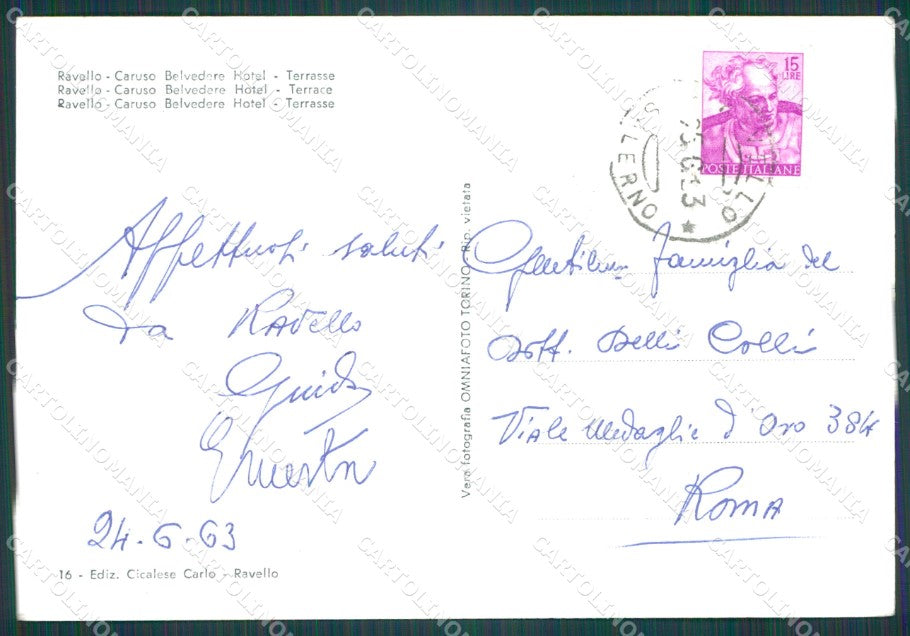 Ravello - Caruso Belvedere Hotel - Terrasse
Ravello - Caruso Belvedere Hotel - Terrace
Ravello - Caruso Belvedere Hotel - Terrasse
Affettuosi saluti
da Ravello
Guido
24-6-63
16 - Ediz. Cicalese Carlo - Ravello
Vera fotografia OMNIAFOTO TORINO - Rip. vietata
15
LIRE
POSTE ITALIANE
SALERNO
famiglia del
Dott. Delli Colli
Viale Medaglie d'Oro 384
Roma
CARTOLINOMANIA